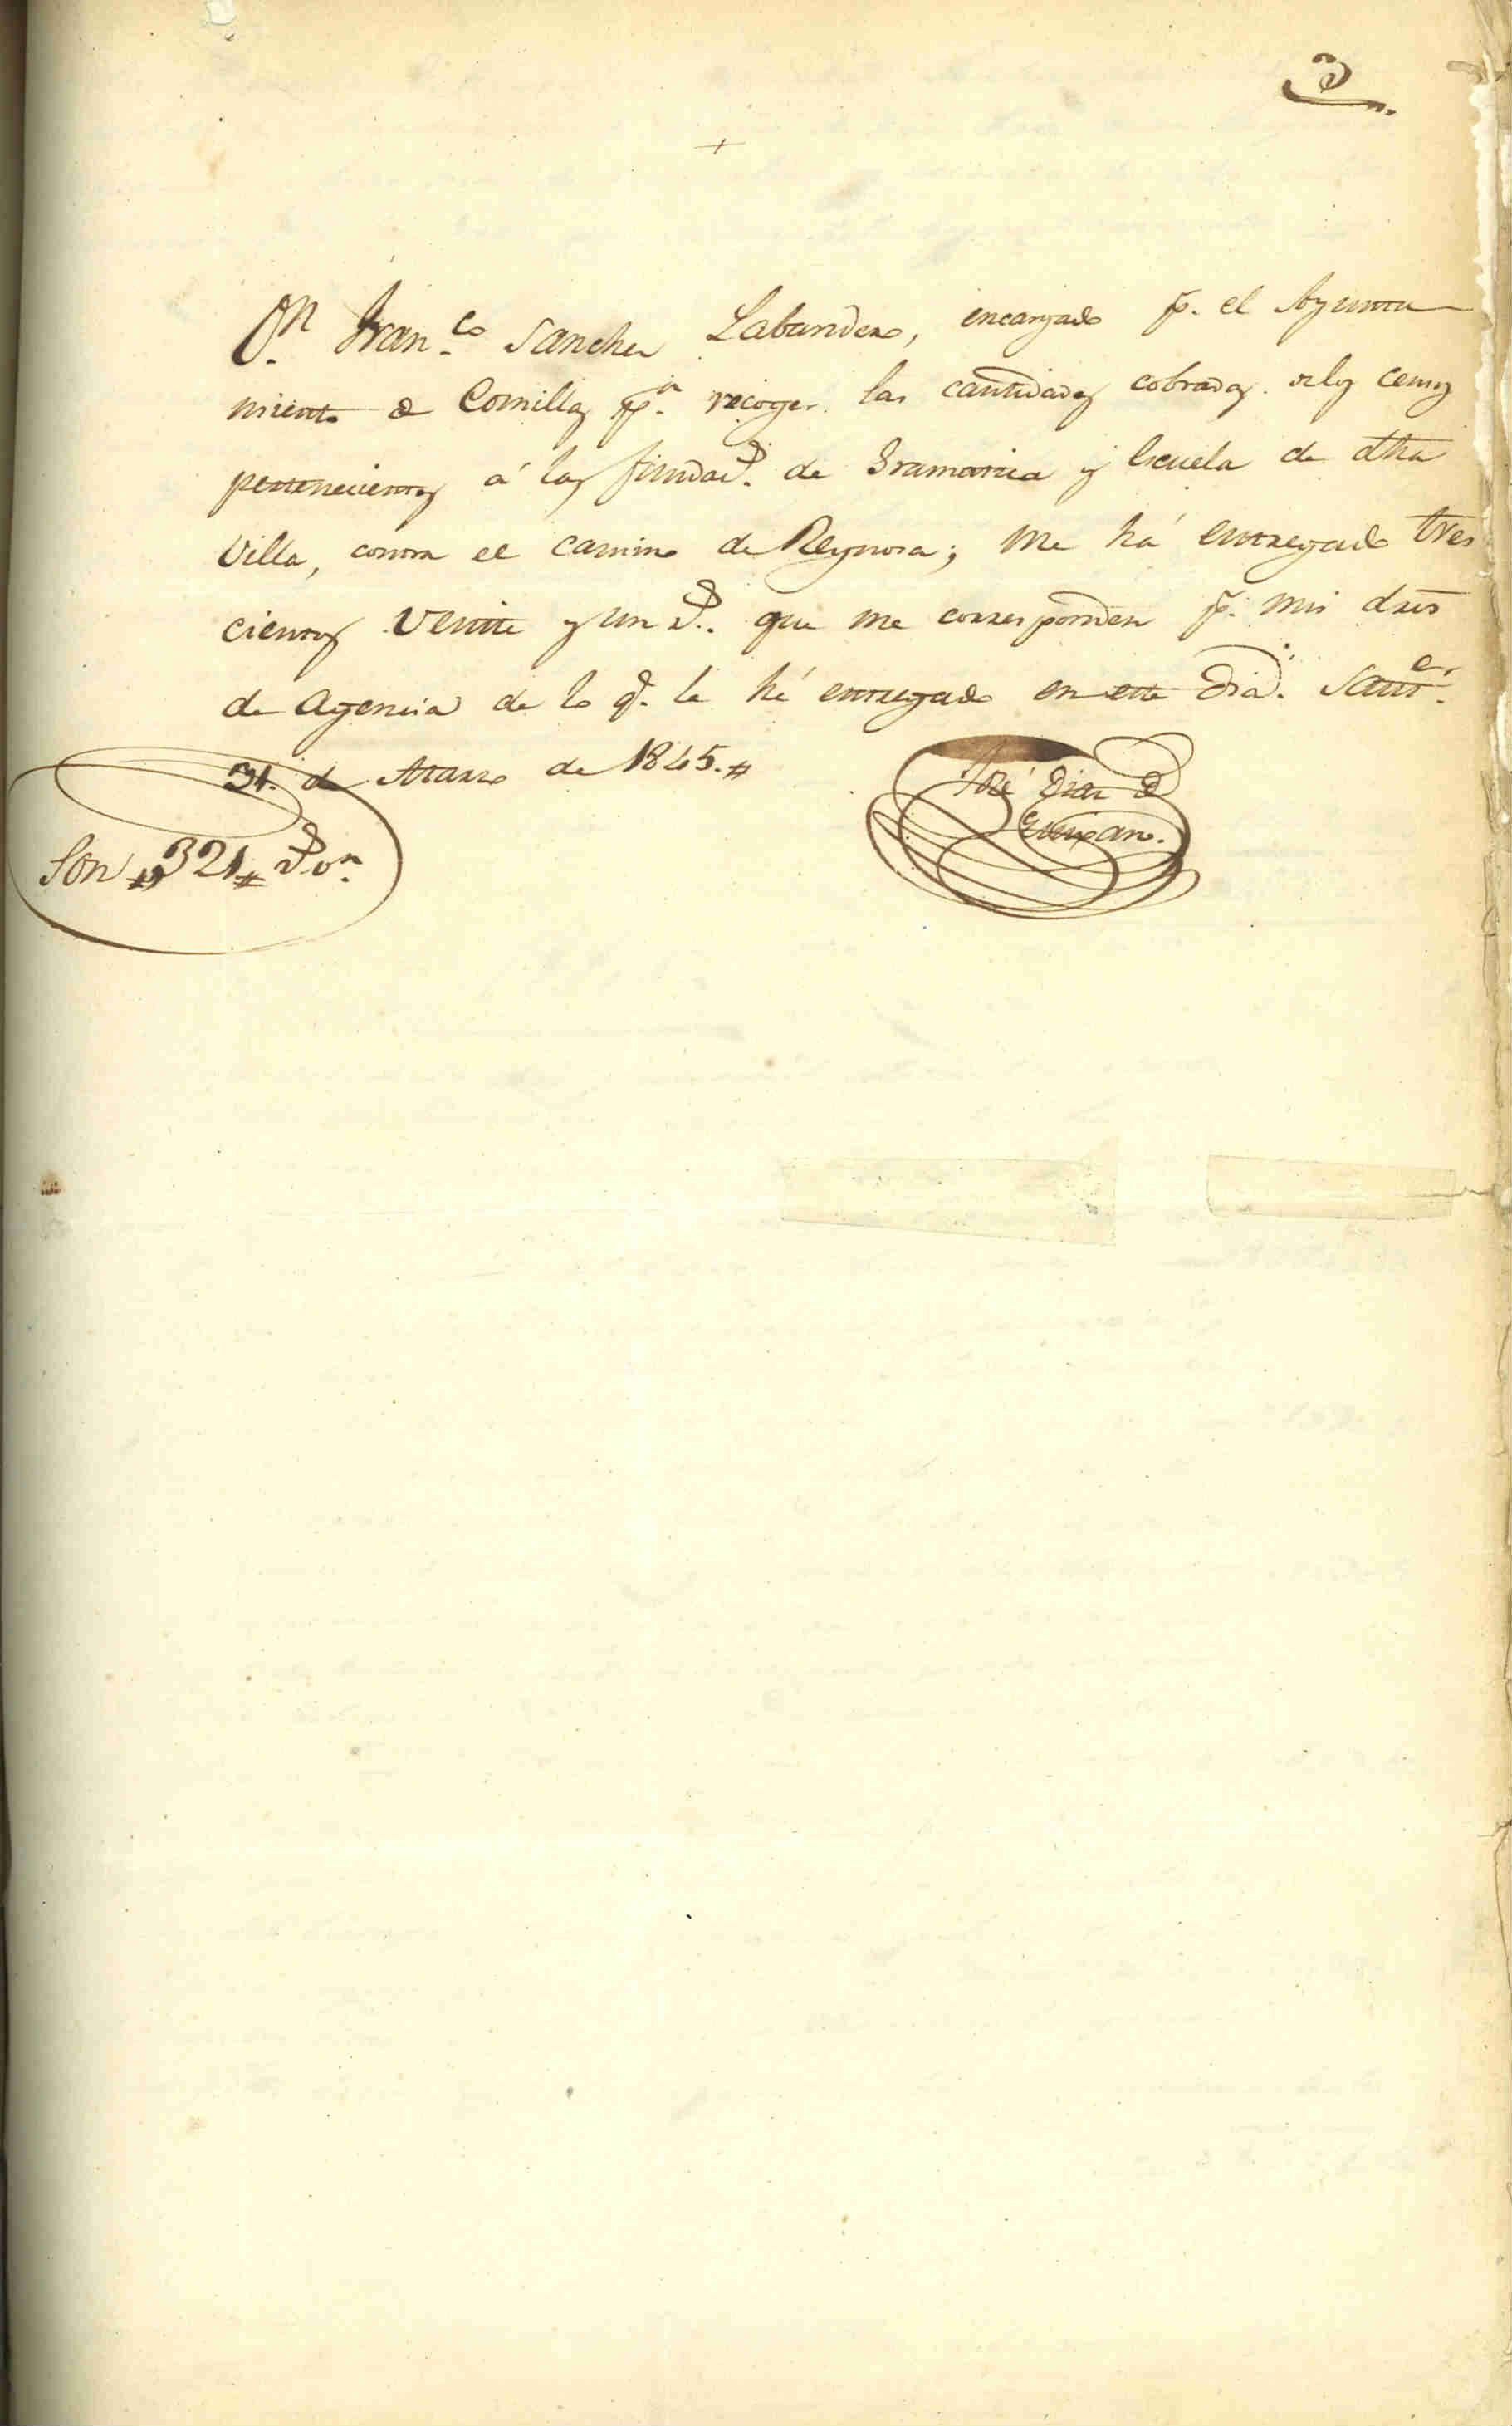 3
+
Dn. Franco. Sanchez Labandero, encargado p. el Ayunta
miento de Comillas pa. recoger las cantidades cobradas de los censos
pertenecientes á las fundacs. de Gramatica y Escuela de dha
Villa, contra el camino de Reynosa; me há entregado tres
cientos veinte y un rs. que me corresponden p. mis dros
de Agencia de lo q. le hé entregado en este dia. Santr.
31. de Marzo de 1845.#
José Diaz de
Son #321# rs. vn.